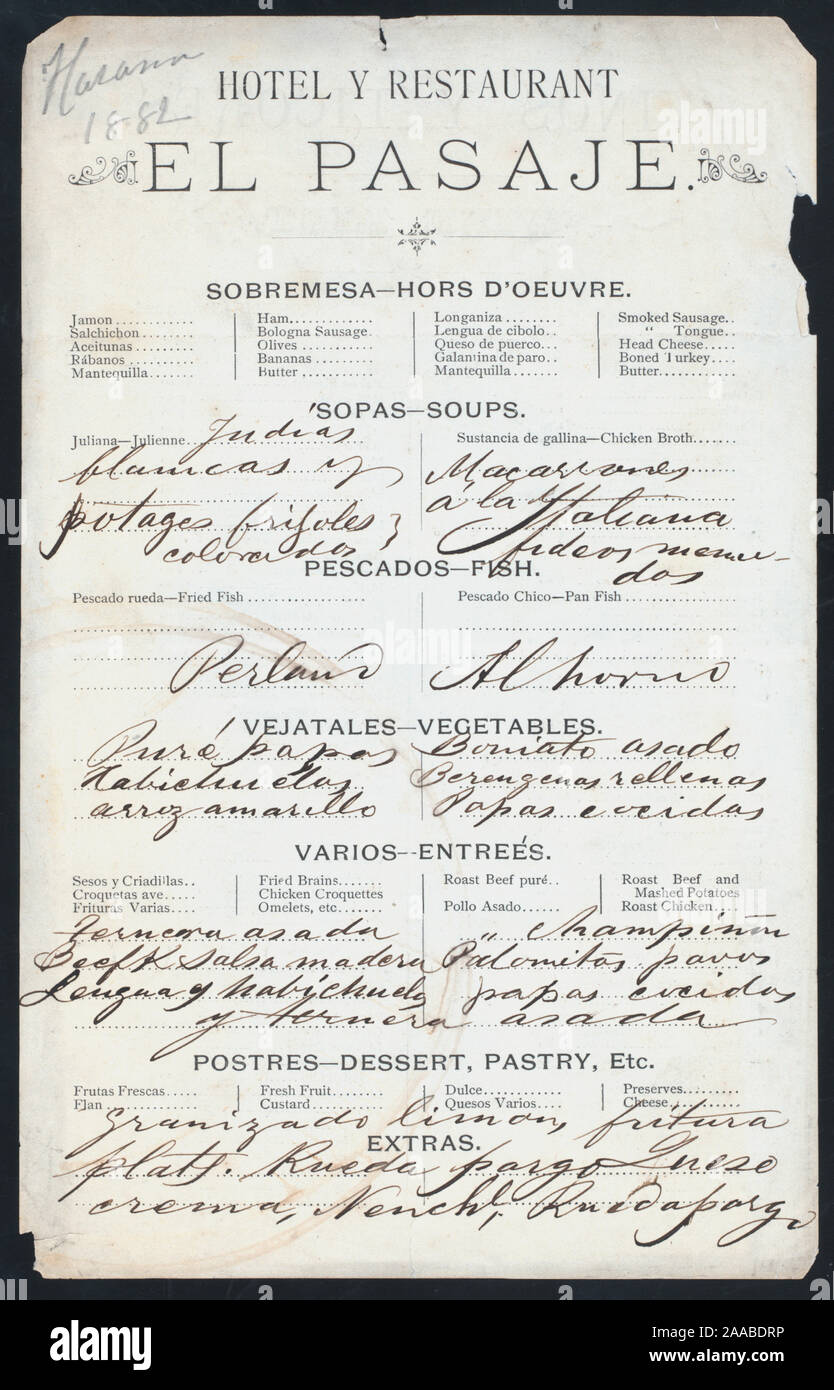 Havana
1882
HOTEL Y RESTAURANT
EL PASAJE.
SOBREMESA—HORS D'OEUVRE.
Jamon........... Ham............ Longaniza ........ Smoked Sausage..
Salchichon........... Bologna Sausage. Lengua de cibolo.. “ Tongue..
Aceitunas ........... Olives ........... Queso de puerco... Head Cheese.....
Rábanos ........... Bananas ........... Galantina de paro.. Boned Turkey....
Mantequilla....... Butter ........... Mantequilla....... Butter...........
SOPAS—SOUPS.
Juliana—Julienne.. Judias Sustancia de gallina—Chicken Broth......
blancas y Macarrones
potages frijoles } á la Italiana
colorados fideos menu-
dos
PESCADOS—FISH.
Pescado rueda—Fried Fish ................... Pescado Chico—Pan Fish ...................
Al horno
VEJATALES—VEGETABLES.
Puré papas Boniato asado
Habichuelas Berengenas rellenas
arroz amarillo Papas cocidas
VARIOS--ENTREÉS.
Sesos y Criadillas.. Fried Brains....... Roast Beef puré.. Roast Beef and
Croquetas ave..... Chicken Croquettes Mashed Potatoes
Frituras Varias.... Omelets, etc....... Pollo Asado...... Roast Chicken....
ternera asada " champiñon
Beefk salsa madera Palomitas pavos
Lengua y habichuela papas cocidas
y ternera asada
POSTRES—DESSERT, PASTRY, Etc.
Frutas Frescas..... Fresh Fruit........ Dulce............ Preserves.........
Flan ............. Custard........... Quesos Varios.... Cheese...........
granizado limon, fritura
EXTRAS.
platt. Rueda pargo Queso
crema, Rueda pargo
alamy
Image ID: 2AABDRP
www.alamy.com